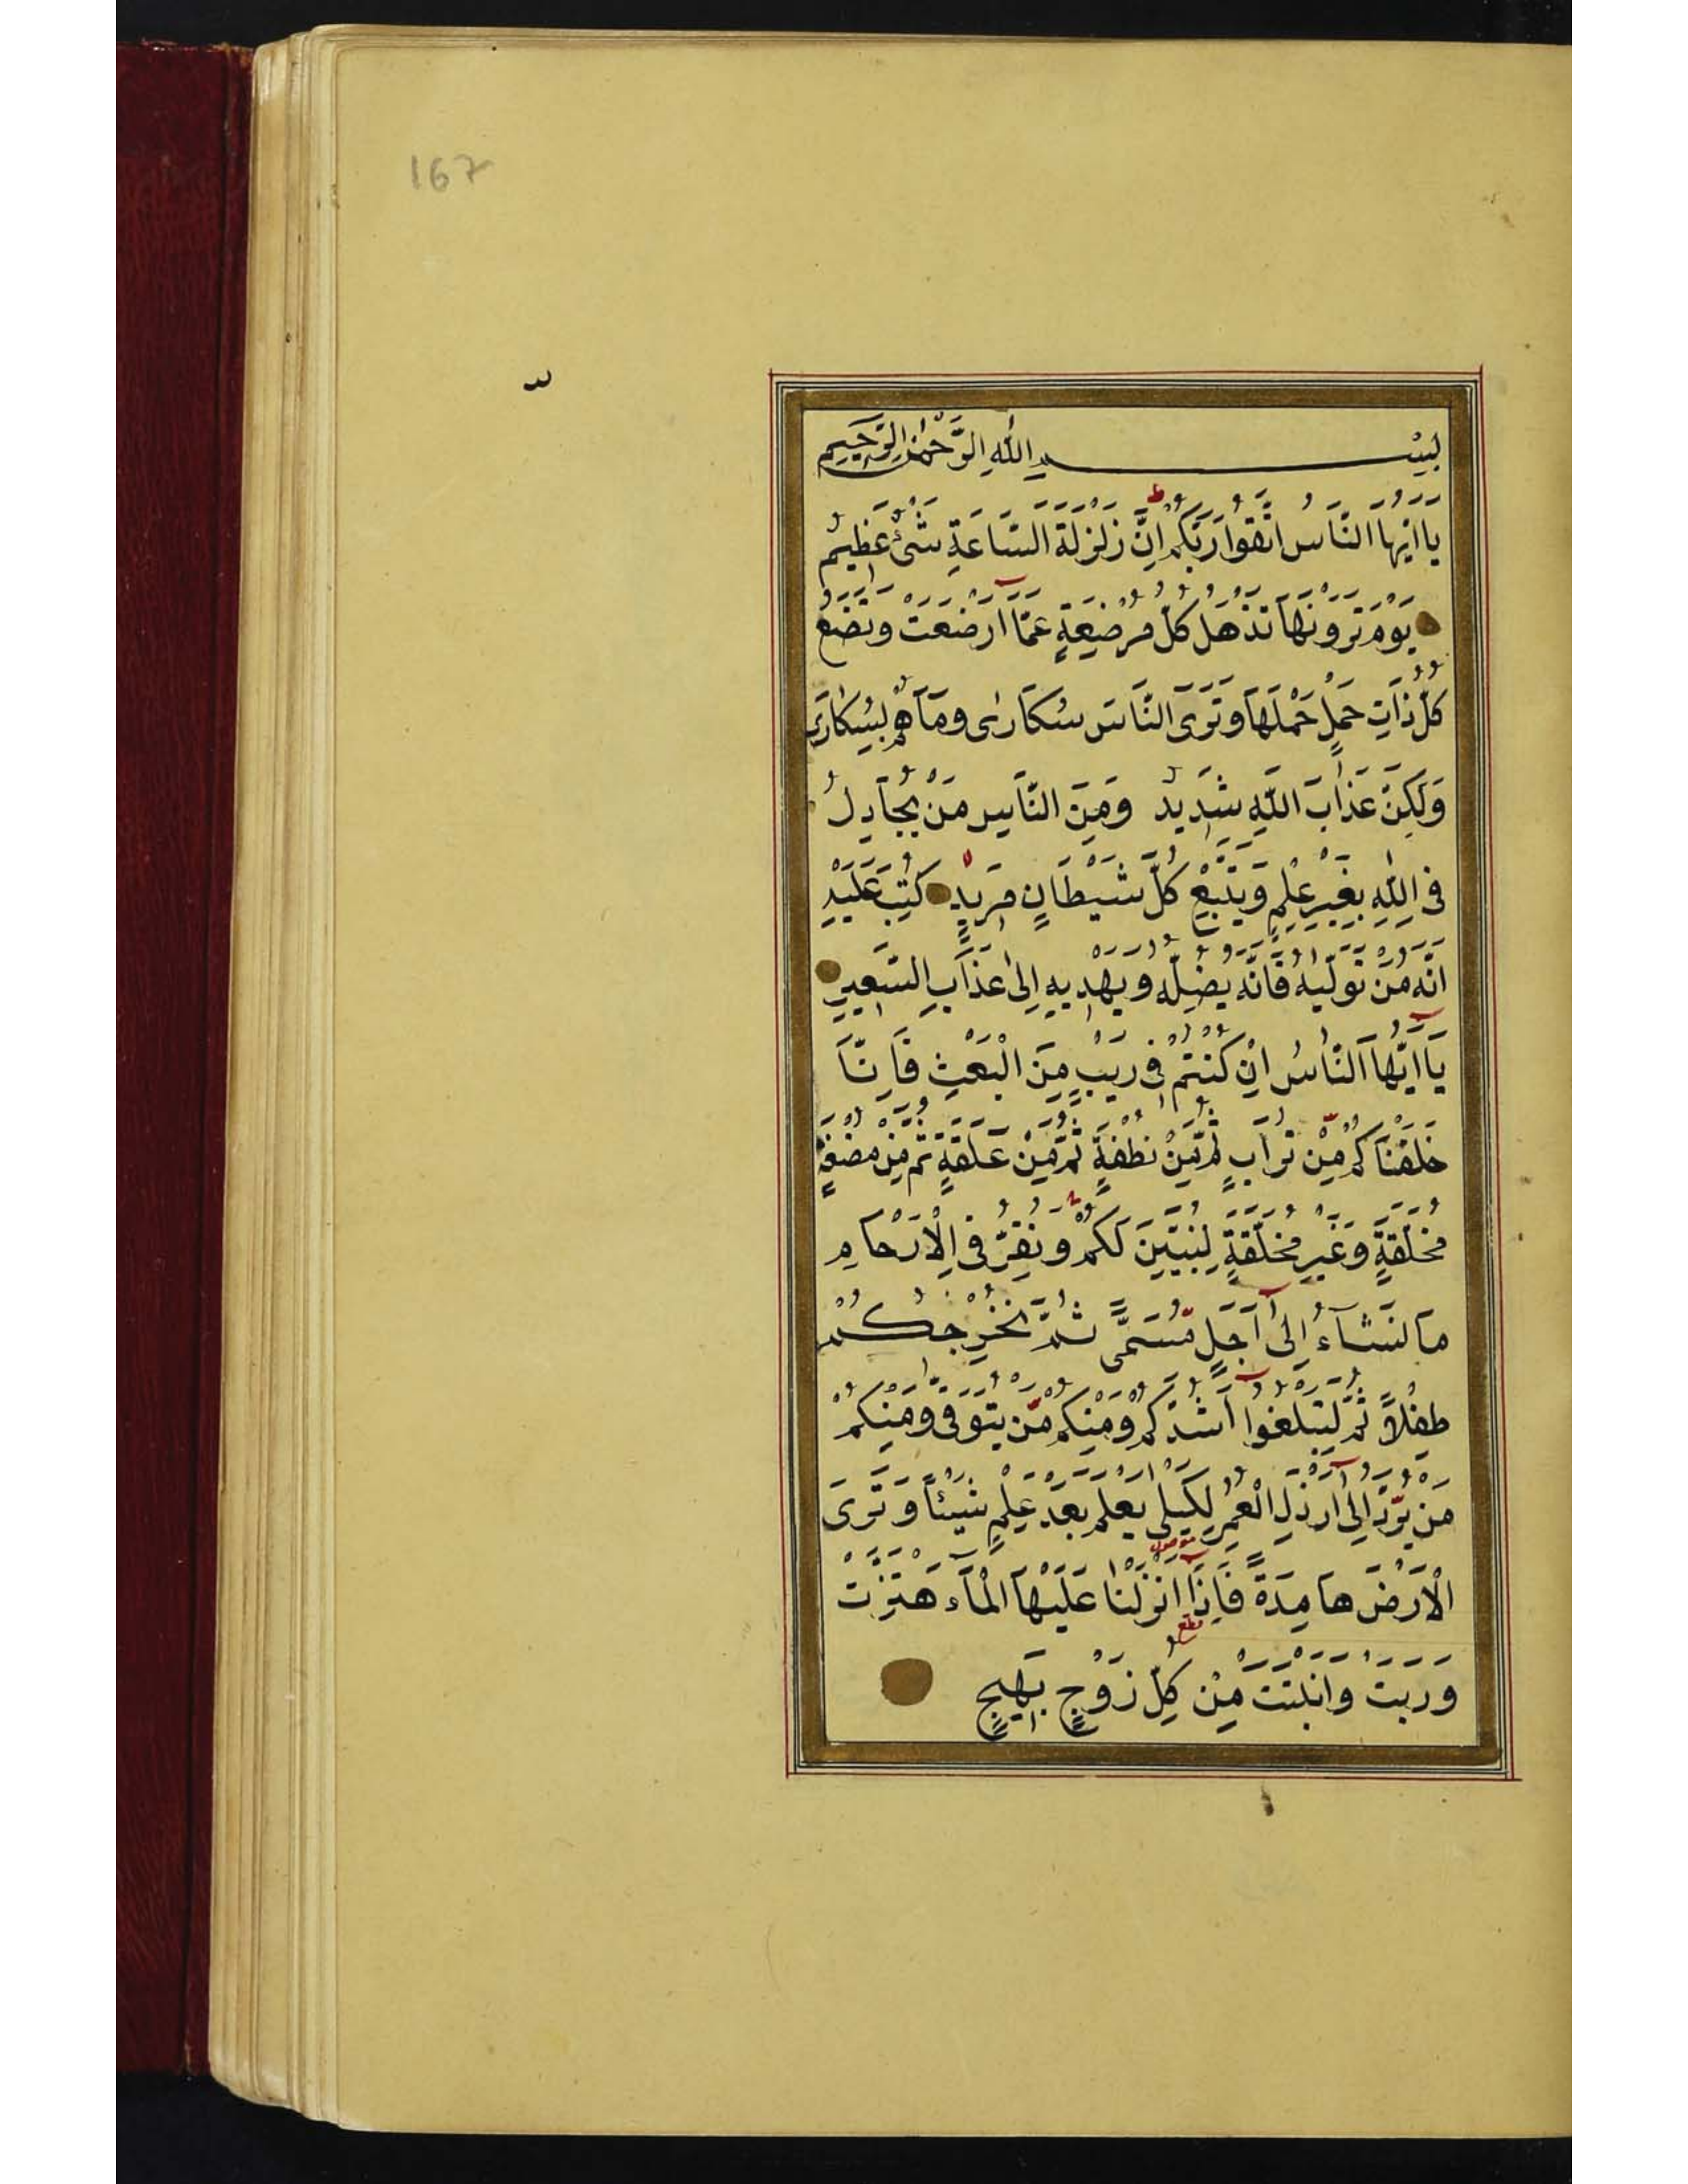 167
بِسْمِ اللهِ الرَّحْمٰنِ الرَّحِيمِ
يَا اَيُّهَا النَّاسُ اتَّقُوا رَبَّكُمْ اِنَّ زَلْزَلَةَ السَّاعَةِ شَيْءٌ عَظِيمٌ
يَوْمَ تَرَوْنَهَا تَذْهَلُ كُلُّ مُرْضِعَةٍ عَمَّا اَرْضَعَتْ وَتَضَعُ
كُلُّ ذَاتِ حَمْلٍ حَمْلَهَا وَتَرَى النَّاسَ سُكَارٰى وَمَا هُمْ بِسُكَارٰى
وَلَكِنَّ عَذَابَ اللّٰهِ شَدِيدٌ وَمِنَ النَّاسِ مَنْ يُجَادِلُ
فِى اللّٰهِ بِغَيْرِ عِلْمٍ وَيَتَّبِعُ كُلَّ شَيْطَانٍ مَرِيدٍ كُتِبَ عَلَيْهِ
اَنَّهُ مَنْ تَوَلَّيهُ فَاَنَّهُ يُضِلُّهُ وَيَهْدِيهِ اِلىٰ عَذَابِ السَّعِيرِ
يَا اَيُّهَا النَّاسُ اِنْ كُنْتُمْ فِى رَيْبٍ مِنَ الْبَعْثِ فَاِنَّا
خَلَقْنَاكُمْ مِنْ تُرَابٍ ثُمَّ مِنْ نُطْفَةٍ ثُمَّ مِنْ عَلَقَةٍ ثُمَّ مِنْ مُضْغَةٍ
مُخَلَّقَةٍ وَغَيْرِ مُخَلَّقَةٍ لِنُبَيِّنَ لَكُمْ وَنُقِرُّ فِى الْاَرْحَامِ
مَا نَشَاءُ اِلىٰ اَجَلٍ مُسَمًّى ثُمَّ نُخْرِجُكُمْ
طِفْلاً ثُمَّ لِتَبْلُغُوا اَشُدَّكُمْ وَمِنْكُمْ مَنْ يُتَوَفّٰى وَمِنْكُمْ
مَنْ يُرَدُّ اِلىٰ اَرْذَلِ الْعُمُرِ لِكَيْلَى يَعْلَمَ بَعْدَ عِلْمٍ شَيْئاً وَتَرَى
الْاَرْضَ هَامِدَةً فَاِذَا اَنْزَلْنَا عَلَيْهَا الْمَاءَ هْتَزَّتْ
وَرَبَتْ وَاَنْبَتَتْ مِنْ كُلِّ زَوْجٍ بَهِيجٍ